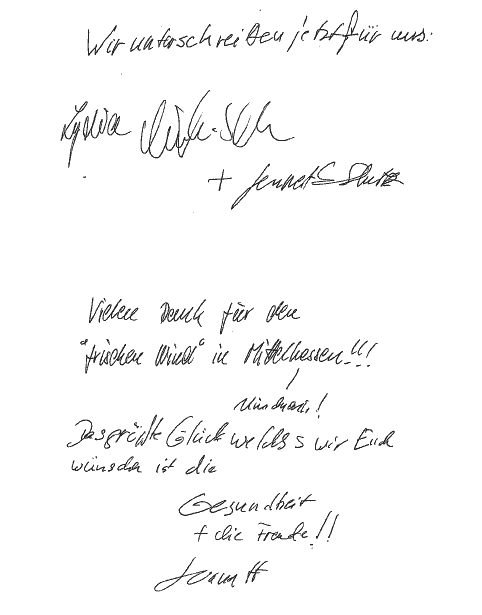 Wir unterschreiben jetzt für uns:
Lydia
+ Jennet
Vielen Dank für den
"frischen Wind" in Mittelhessen!!!
Das größte Glück welches wir Euch
wünschen ist die
Gesundheit
+ die Freude!!